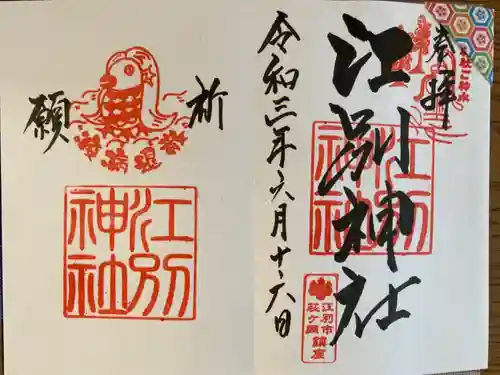 奉拝
江別神社
江別神社
江別市
萩ヶ岡
鎮座
令和三年六月十六日
祈
願
江別
神社